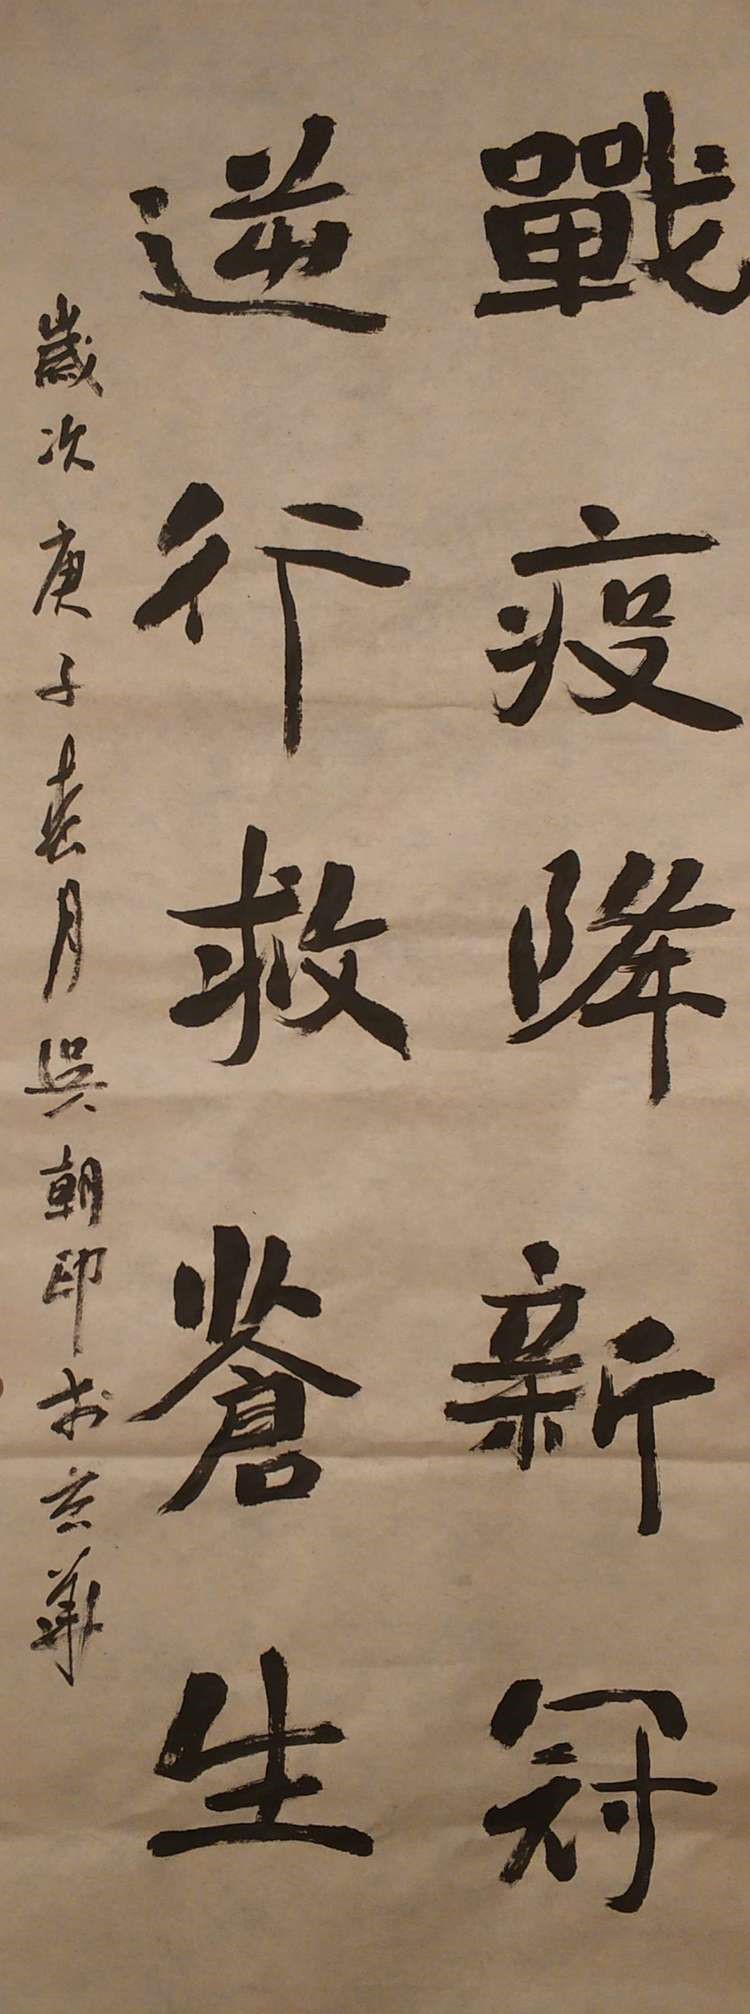 戰疫降新冠
逆行救蒼生
歲次庚子春月吳朝印書京華